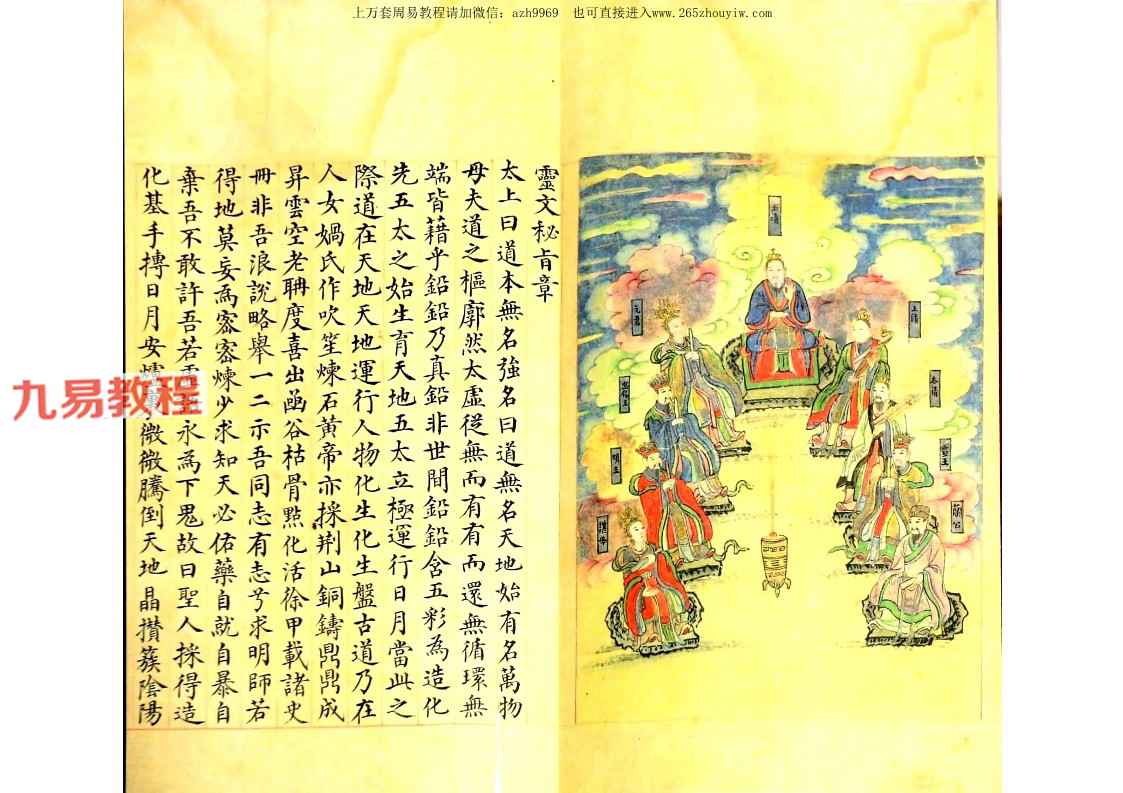 上万套周易教程请加微信：azh9969 也可直接进入www.265zhouyiw.com
靈文秘旨章
太上曰道本無名強名曰道無名天地始有名萬物
母夫道之樞廓然太虛從無而有有而還無循環無
端皆藉乎鉛鉛乃真鉛非世間鉛鉛含五彩為造化
先五太之始生育天地五太立極運行日月當此之
際道在天地天地運行人物化生化生盤古道乃在
人女媧氏作吹笙煉石黃帝亦採荆山銅鑄鼎鼎成
昇雲空老聃度喜出函谷枯骨點化活徐甲載諸史
冊非吾浪說略舉一二示吾同志有志兮求明師若
得地莫妄為密密煉少求知天必佑藥自就自暴自
棄吾不敢許吾若永為下鬼故曰聖人採得造
化基手摶日月安爐微微騰倒天地晶攢簇陰陽
九易教程
玉清
元君
上清
太清
明王
靈王
蘭公